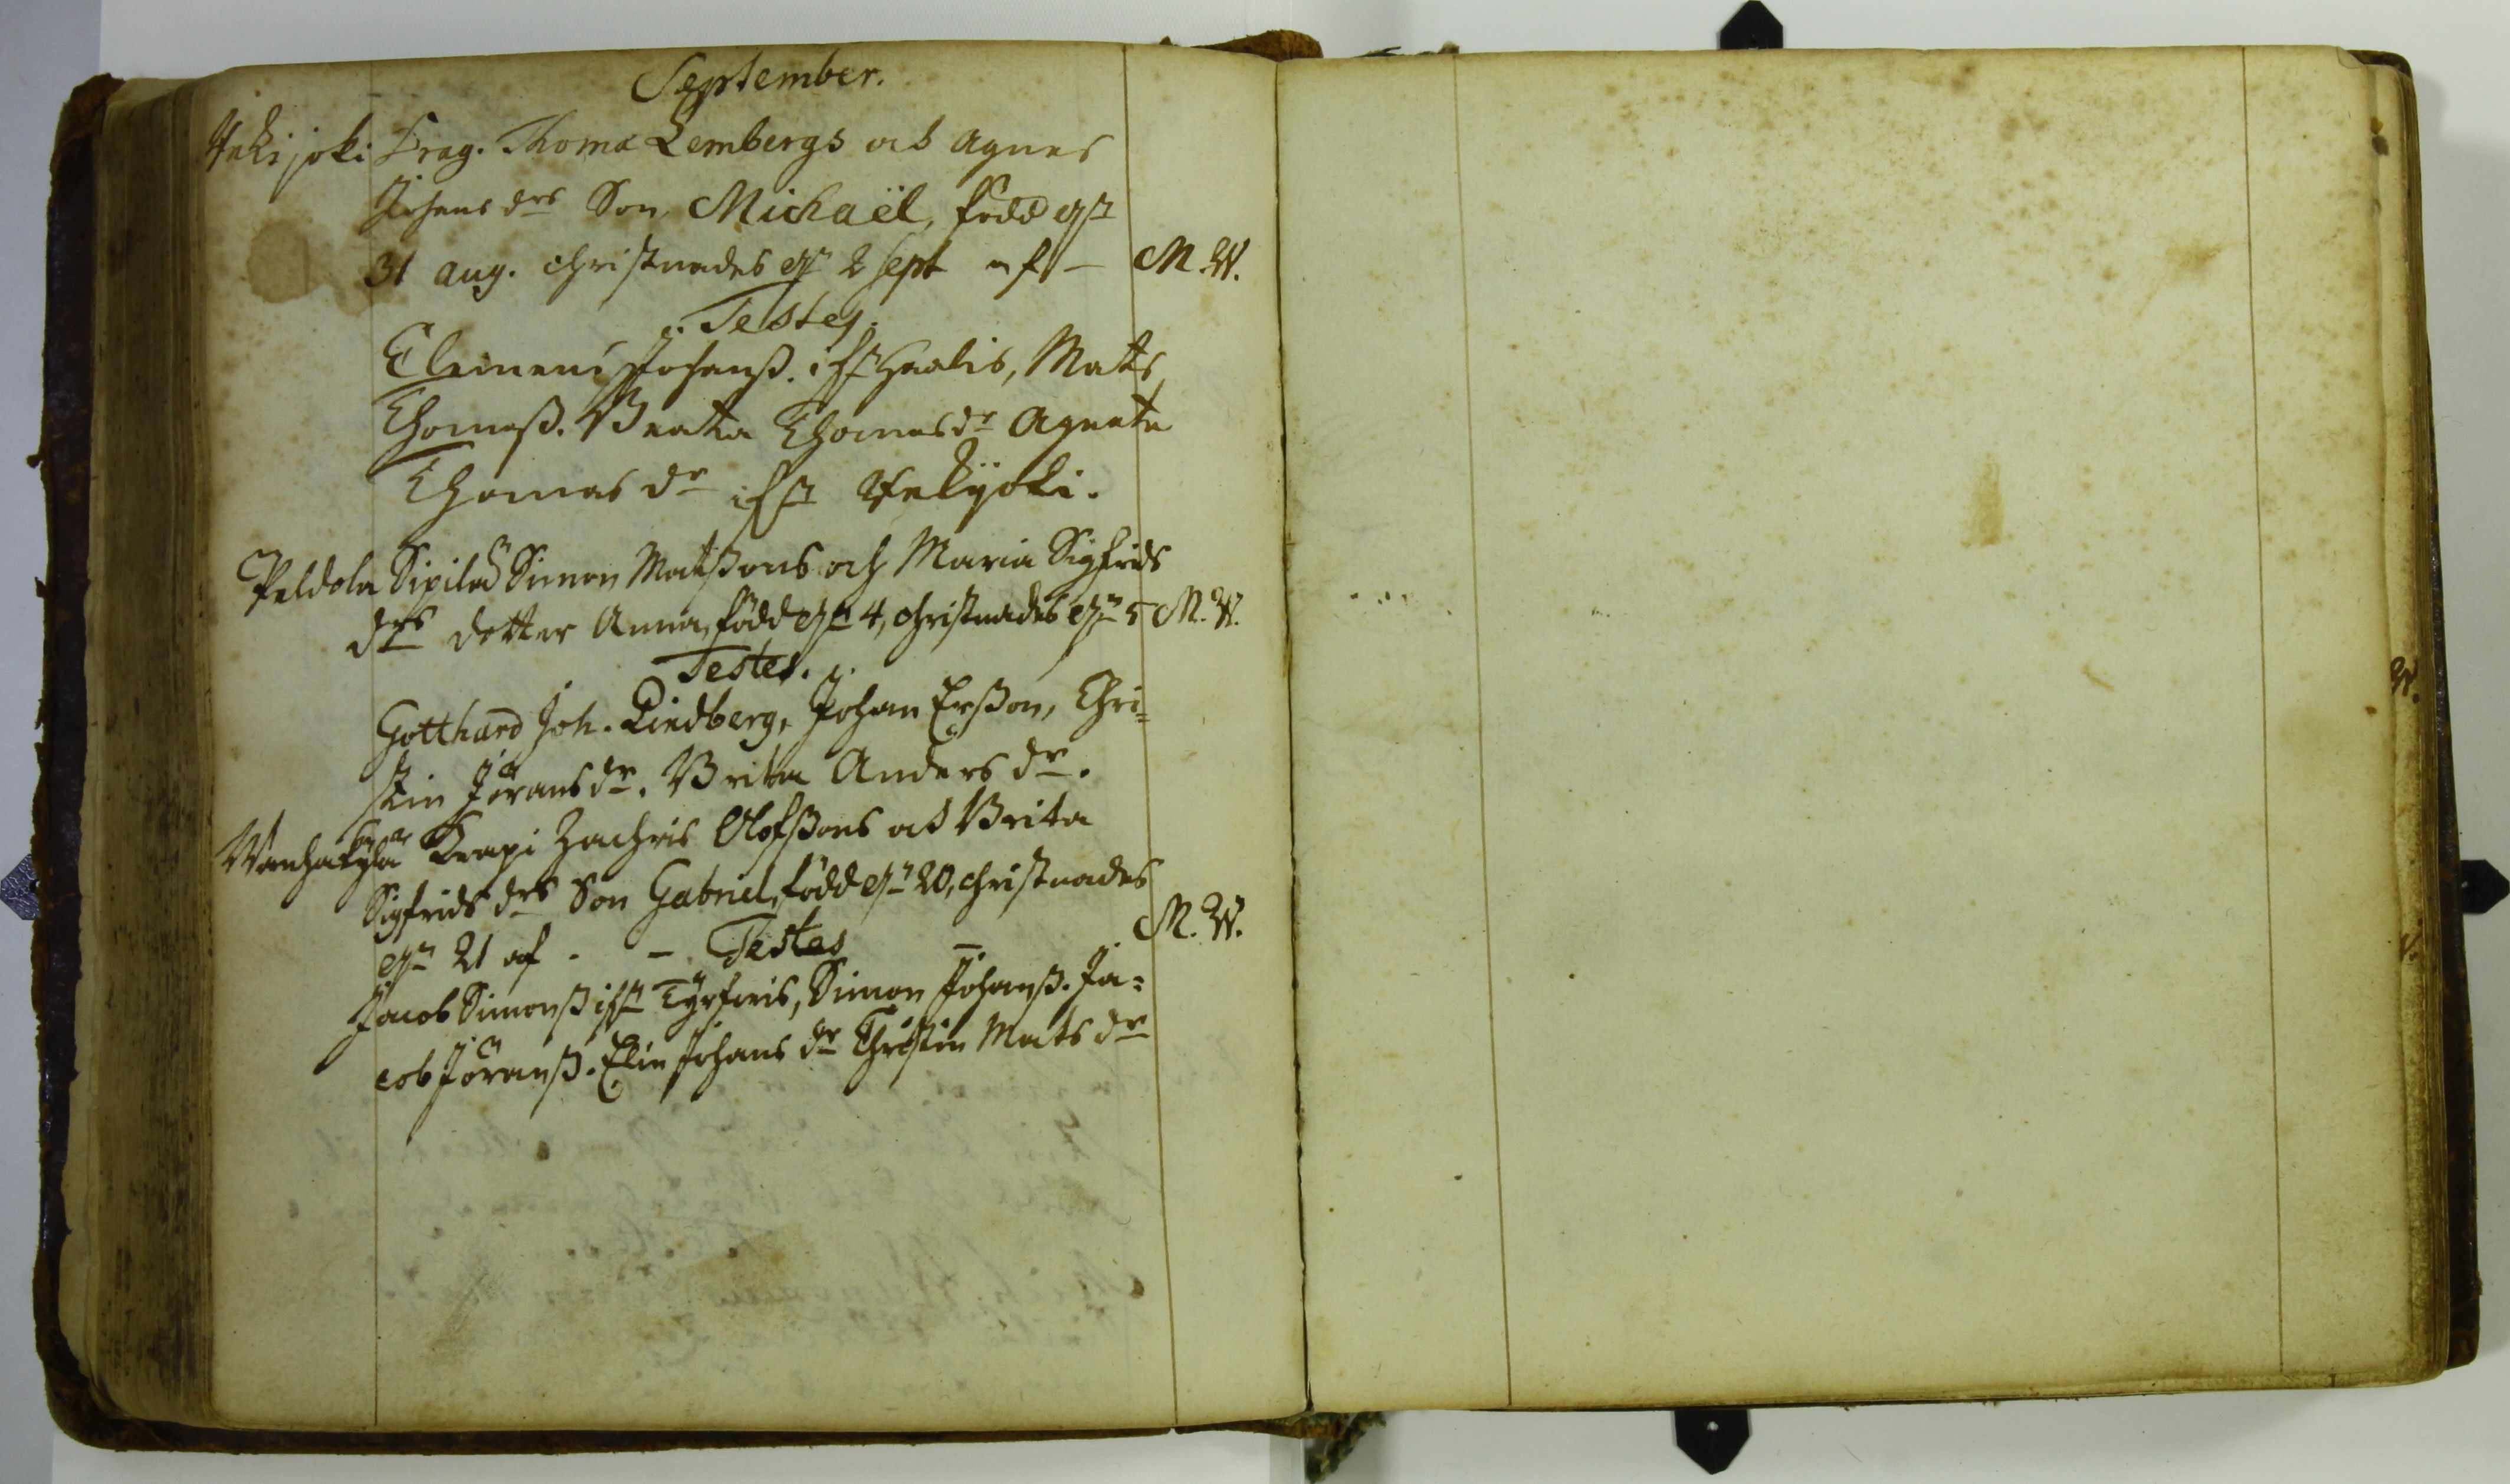 September.
Drag. Thomæ Lembergs och Agnes
Johans drs Son, Michaël, född
31 aug. christnades 2 Sept af — M. W.
Testes.
Clemens Johanß. Mats
Thomaß. Beata Thomas dr Agneta
Thomas dr
Peldola Sipilä Simon Matßons och Maria Sigfrids
drs dotter Anna, född 4, christnades 5 M. W.
Testes.
Gotthard Joh. Lindberg, Johan Erßon, Chri=
stin Jörans dr. Brita Anders dr.
Wanhakylä Krapi Zachris Olofßons och Brita
Sigfrids drs Son Gabriel, född 20, christnades
21 af - — Testes — M. W.
Jacob Simonß Simon Johanß. Ja=
cob Jöranß. Elin Johans dr Christin Mats dr
W.